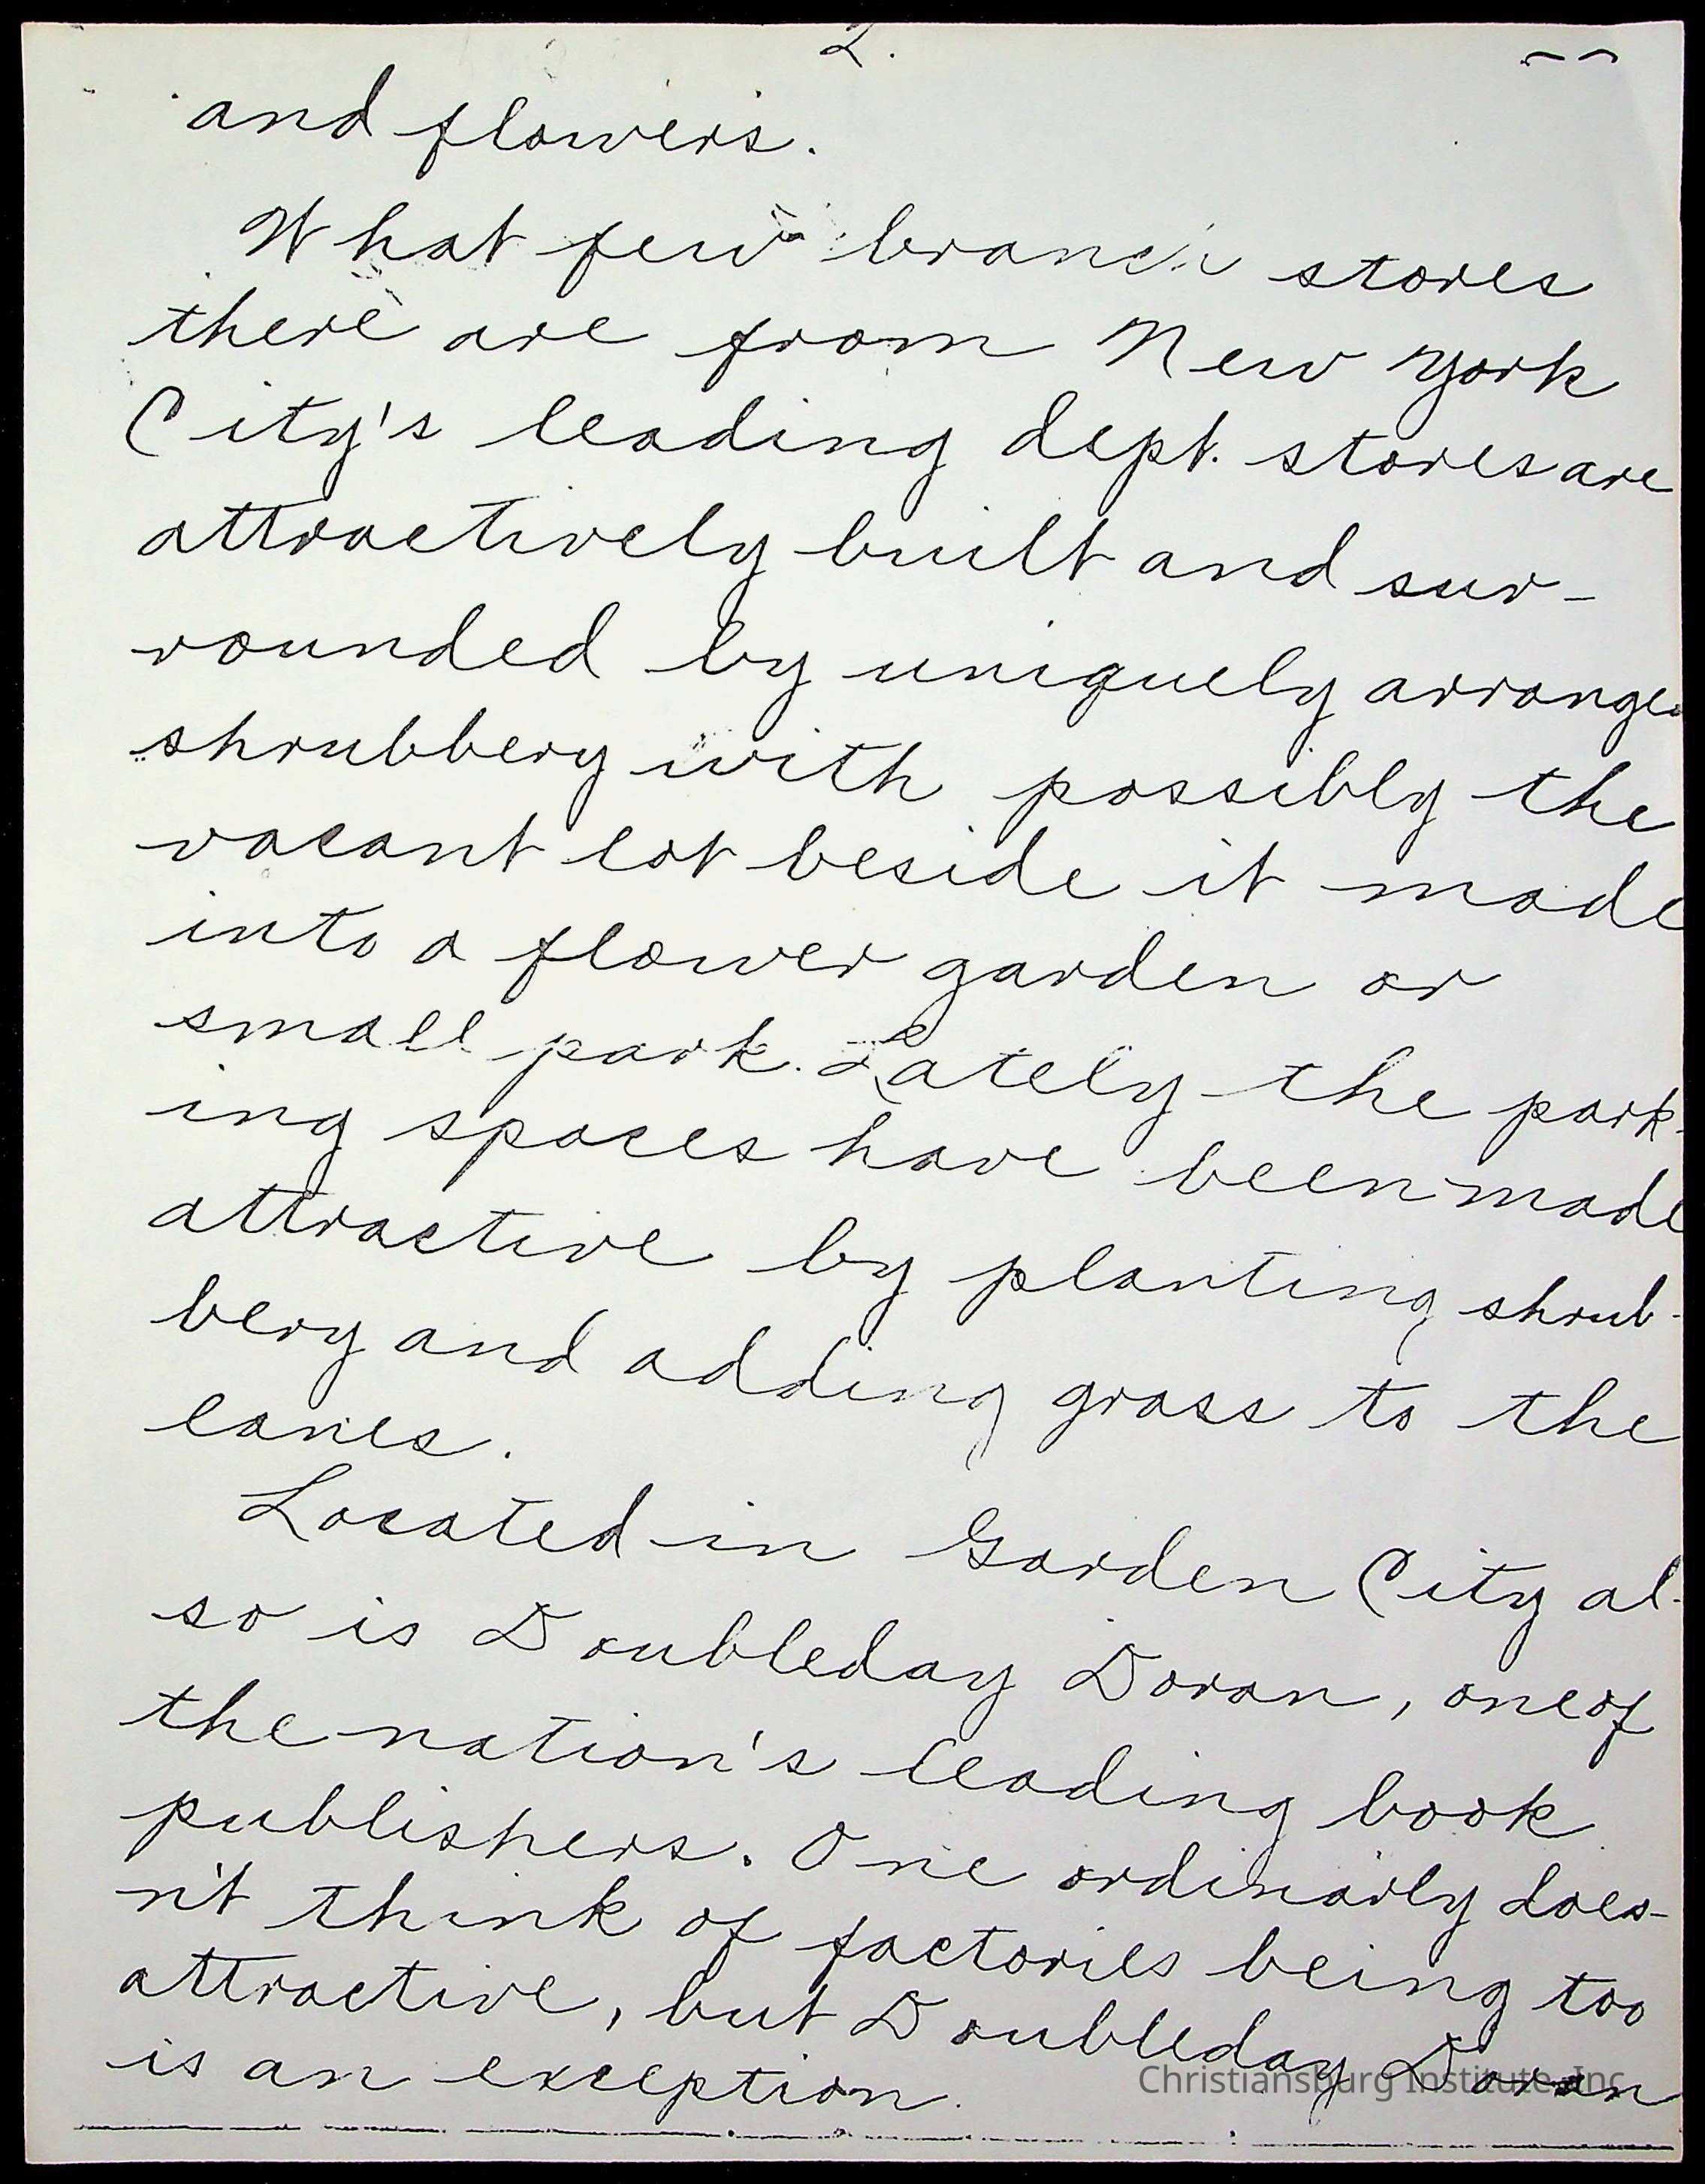 2.
and flowers.
What few branch stores
there are from New York
City's leading dept. stores are
attractively built and sur-
rounded by uniquely arranged
shrubbery with possibly the
vacant lot beside it made
into a flower garden or
small park. Lately the park-
ing spaces have been made
attractive by planting shrub-
bery and adding grass to the
lanes.
Located in Garden City al-
so is Doubleday Doran, one of
the nation's leading book
publishers. One ordinarily does-
n't think of factories being too
attractive, but Doubleday Doran
is an exception.
Christiansburg Institute, Inc.